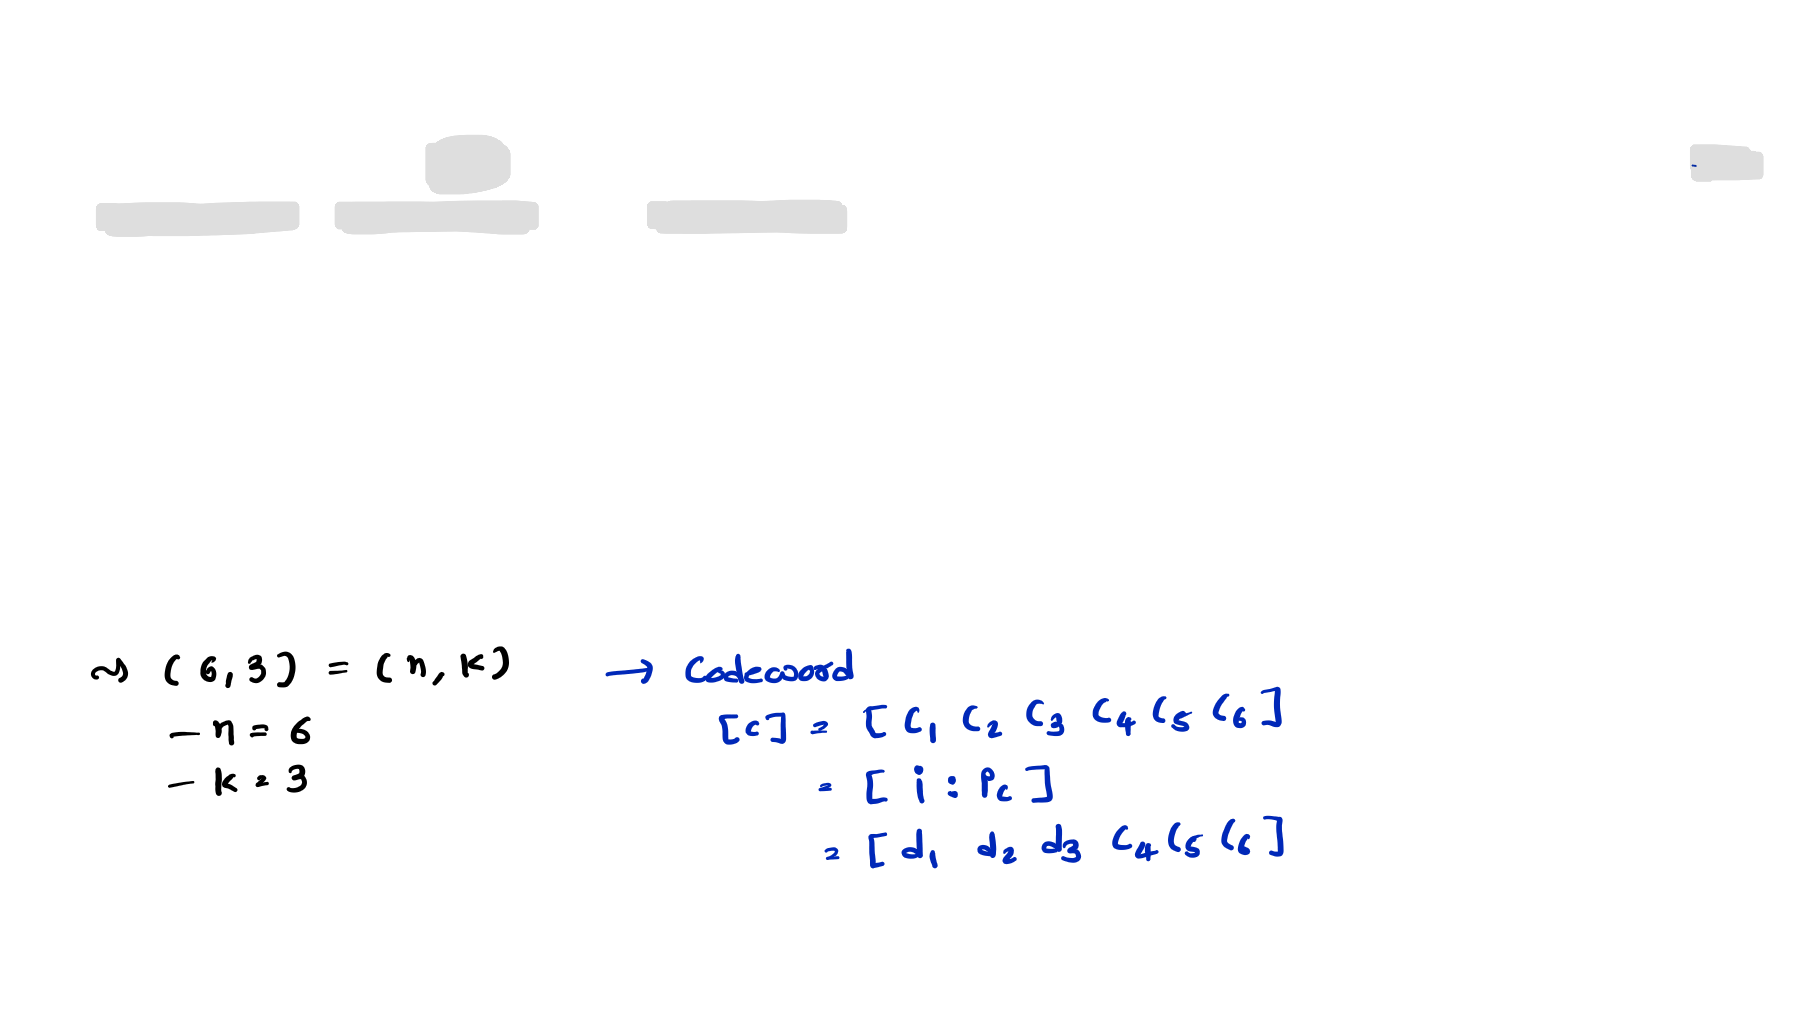 ~> (6,3) = (n, k)
→ Codeword
- n = 6
[c] = [ C1 C2 C3 C4 C5 C6 ]
- k = 3
= [ i : Pc ]
= [ d1 d2 d3 C4 C5 C6 ]